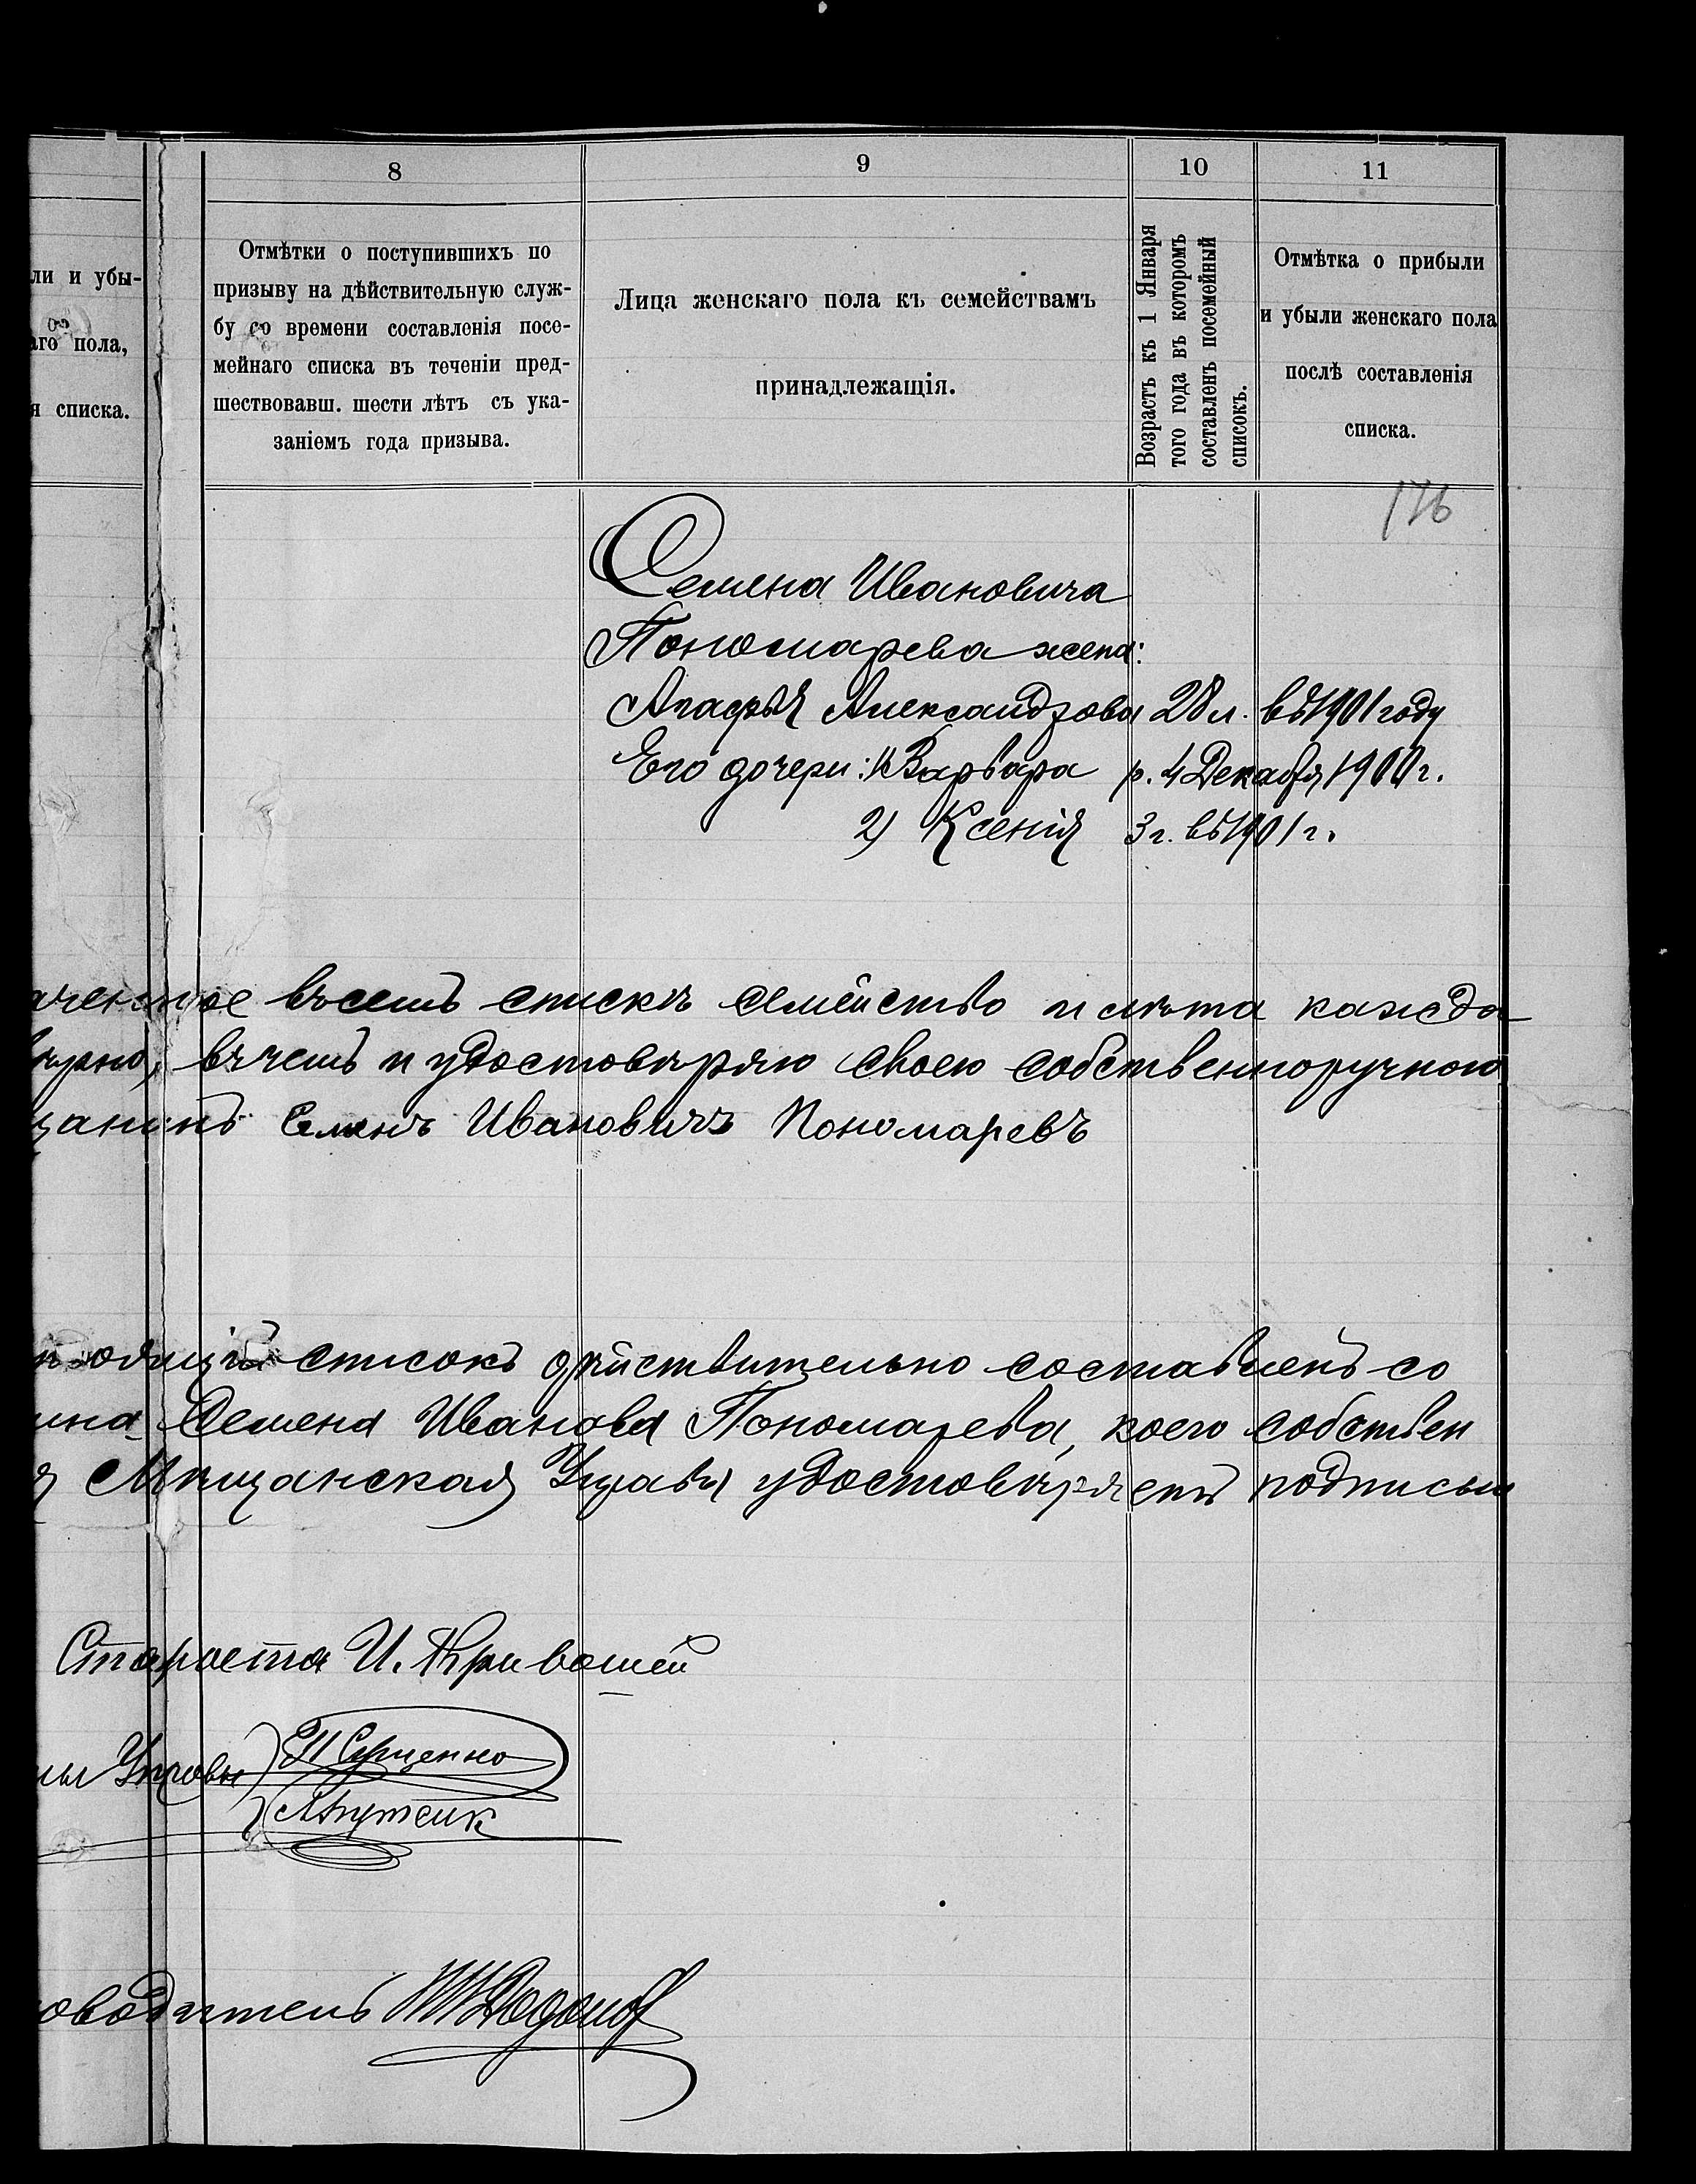 8
9
10
11
ли и убы-
аго пола,
я списка.
Отмѣтки о поступившихъ по
призыву на дѣйствительную служ-
бу со времени составленія посе-
мейнаго списка въ теченіи пред-
шествовавш. шести лѣтъ съ ука-
заніемъ года призыва.
Лица женскаго пола къ семействамъ
принадлежащія.
Возрастъ къ 1 Января
того года въ которомъ
составленъ посемейный
списокъ.
Отмѣтка о прибыли
и убыли женскаго пола
послѣ составленія
списка.
176
Семена Ивановича
Пономарева жена:
Агафья Александрова 28 л. въ 1901 году
Его дочери: 1) Варвара р. 4 Декабря 1900 г.
2) Ксенія 3 г. въ 1901 г.
ченное въ семъ спискѣ семейство и лѣта каждо
вѣрно, въ чемъ и удостовѣряю своею собственноручною
щанинъ Семенъ Ивановичъ Пономаревъ
одящій списокъ дѣйствительно составленъ со
ина Семена Иванова Пономарева, коего собствен
я Мѣщанская Управа удостовѣряетъ подписью
Староста И. Кривошей
ны Управы
оводитель